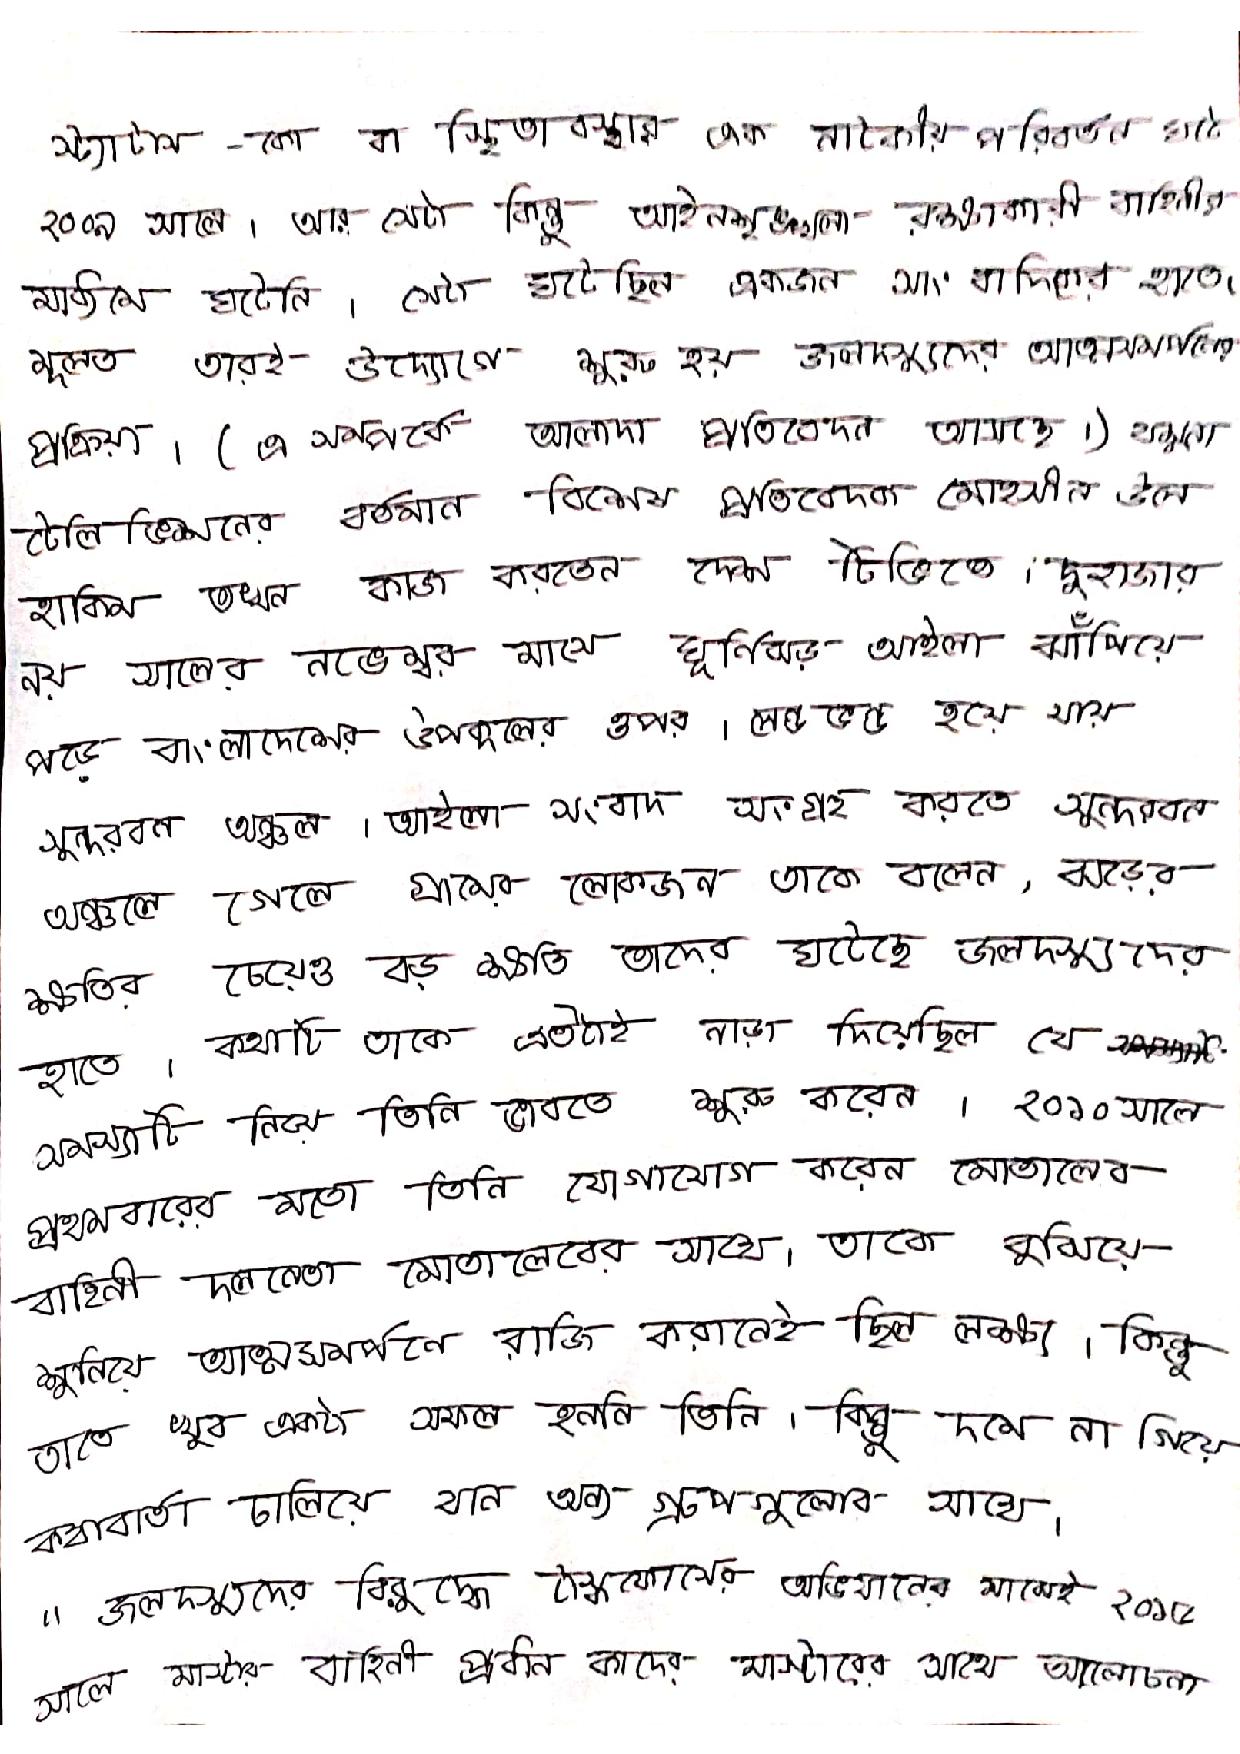 স্ট্যাটাস -কো বা স্থিতাবস্থার এক নাটকীয় পরিবর্তন ঘটে
২০০৯ সালে। আর সেটা কিন্তু আইনশৃঙ্খলা রক্ষাকারী বাহিনীর
মাধ্যমে ঘটেনি। সেটা ঘটেছিল একজন সাংবাদিকের হাতে।
মূলত তারই উদ্যোগে শুরু হয় জলদস্যুদের আত্মসমর্পনের
প্রক্রিয়া। (এ সম্পর্কে আলাদা প্রতিবেদন আসছে।) যমুনা
টেলিভিশনের বর্তমান বিশেষ প্রতিবেদক মোহসীন উল
হাকিম তখন কাজ করতেন দেশ টিভিতে। দুহাজার
নয় সালের নভেম্বর মাসে ঘূর্নিঝড় আইলা ঝাঁপিয়ে
পড়ে বাংলাদেশের উপকূলের ওপর। লন্ডভন্ড হয়ে যায়
সুন্দরবন অঞ্চল। আইলা সংবাদ সংগ্রহ করতে সুন্দরবন
অঞ্চলে গেলে গ্রামের লোকজন তাকে বলেন, ঝড়ের
ক্ষতির চেয়েও বড় ক্ষতি তাদের ঘটেছে জলদস্যুদের
হাতে। কথাটি তাকে এতটাই নাড়া দিয়েছিল যে
সমস্যাটি নিয়ে তিনি ভাবতে শুরু করেন। ২০১০ সালে
প্রথমবারের মতো তিনি যোগাযোগ করেন মোতালেব
বাহিনী দলনেতা মোতালেবের সাথে। তাকে বুঝিয়ে
শুনিয়ে আত্মসমর্পনে রাজি করানোই ছিল লক্ষ্য। কিন্তু
তাতে খুব একটা সফল হননি তিনি। কিন্তু দমে না গিয়ে
কথাবার্তা চালিয়ে যান অন্য গ্রুপগুলোর সাথে।
" জলদস্যুদের বিরুদ্ধে টাস্কফোর্সের অভিযানের মাঝেই ২০১৫
সালে মাস্টার বাহিনী প্রধান কাদের মাস্টারের সাথে আলোচনা